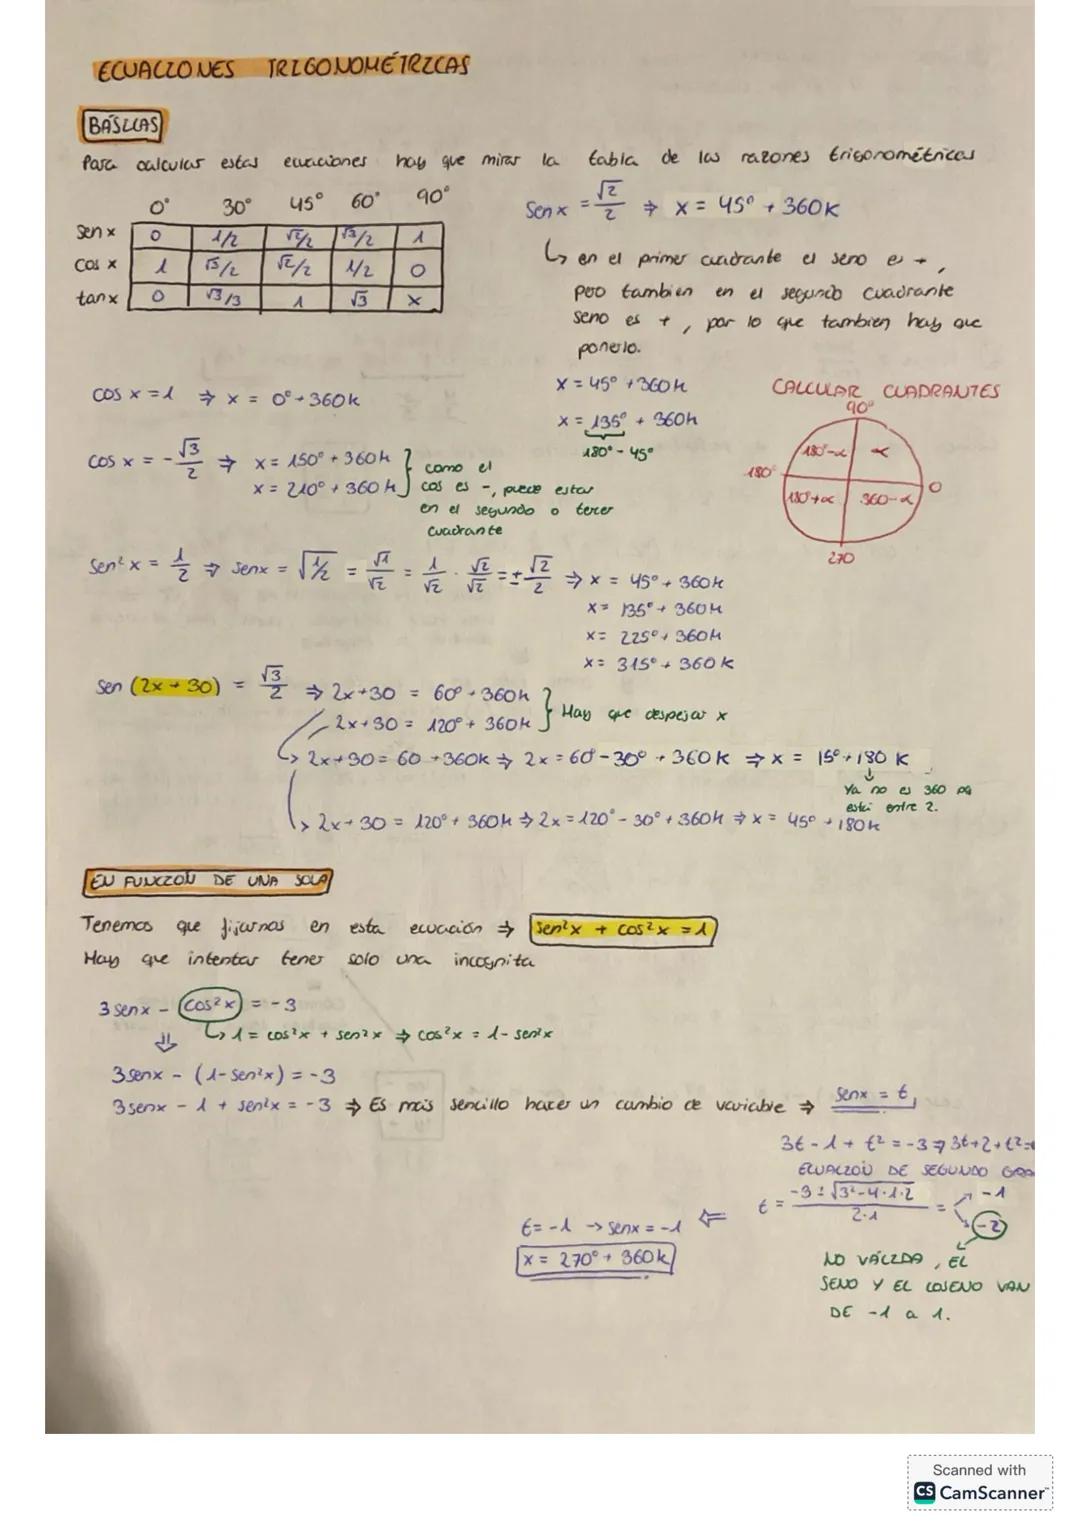 ECUACIONES TRIGONOMÉTRICAS
BÁSICAS
Para calcular estas ecuaciones hay que mirar la tabla de las razones trigonométricas
0° 30° 45° 60° 90°
sen x 0 1/2 √2/2 √3/2 1
cos x 1 √3/2 √2/2 1/2 0
tan x 0 √3/3 1 √3 X
Sen x = √2/2 ⇒ x = 45° + 360K
↳ en el primer cuadrante el seno es +,
pero tambien en el segundo cuadrante
seno es +, por lo que tambien hay que
ponerlo.
x = 45° + 360K
x = 135° + 360K
180° - 45°
CALCULAR CUADRANTES
90°
180°-α α
180° 0
180+α 360-α
270
cos x = 1 ⇒ x = 0° + 360K
cos x = -√3/2 ⇒ x = 150° + 360K
x = 210° + 360K
como el
cos es -, puede estar
en el segundo o tercer
cuadrante
Sen² x = 1/2 ⇒ senx = √1/2 = √1/√2 = 1/√2 · √2/√2 = ±√2/2 ⇒ x = 45° + 360K
x = 135° + 360K
x = 225° + 360K
x = 315° + 360K
Sen (2x + 30) = √3/2 ⇒ 2x+30 = 60° + 360K
2x+30 = 120° + 360K
Hay que despejar x
↳ 2x+30 = 60 + 360K ⇒ 2x = 60° - 30° + 360K ⇒ x = 15° + 180 K
Ya no es 360 pq
está entre 2.
↳ 2x+30 = 120° + 360K ⇒ 2x = 120° - 30° + 360K ⇒ x = 45° + 180K
EN FUNCION DE UNA SOLA
Tenemos que fijarnos en esta ecuación ⇒ sen²x + cos²x = 1
Hay que intentar tener solo una incognita
3 senx - cos²x = -3
↳ 1 = cos²x + sen²x ⇒ cos²x = 1 - sen²x
⇓
3senx - (1-sen²x) = -3
3senx - 1 + sen²x = -3 ⇒ Es más sencillo hacer un cambio de variable ⇒ senx = t
3t - 1 + t² = -3 ⇒ 3t+2+t²=
ECUACIÓN DE SEGUNDO
t = -3 ± √3²-4·1·2 / 2·1 = -1
-2
NO VÁLIDA, EL
SENO Y EL COSENO VAN
DE -1 a 1.
t = -1 → senx = -1 ⇐
x = 270° + 360K
Scanned with
CS CamScanner